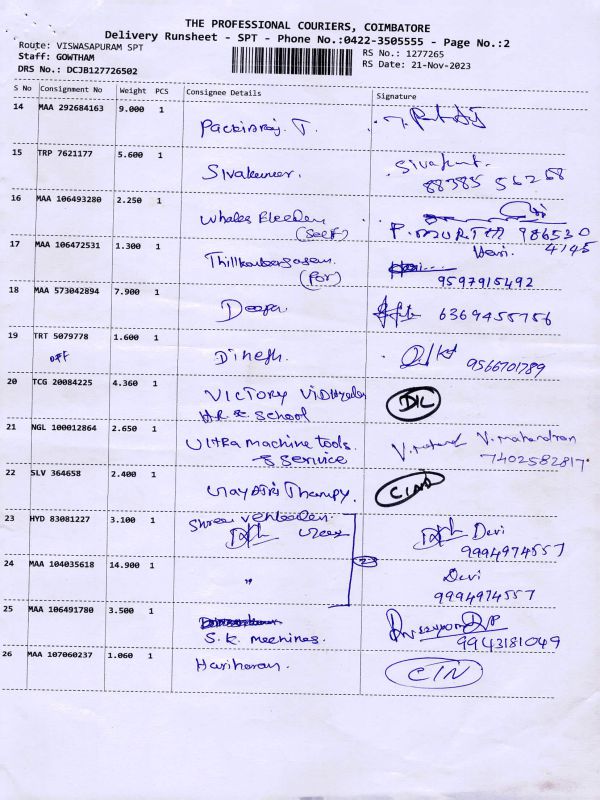 THE PROFESSIONAL COURIERS, COIMBATORE
Delivery Runsheet - SPT - Phone No.:0422-3505555 - Page No.:2
Route: VISWASAPURAM SPT
Staff: GOWTHAM
DRS No.: DCJB127726502
RS No.: 1277265
RS Date: 21-Nov-2023
S No Consignment No Weight PCS Consignee Details Signature
14 MAA 292684163 9.000 1
T.
15 TRP 7621177 5.600 1
Sivakumar. Sivakumar.
88385 56268
16 MAA 106493280 2.250 1
Whales
(Self) P. MURTHY 986530
4145
17 MAA 106472531 1.300 1 Hari.
(For) 9597915492
18 MAA 573042894 7.900 1
Deepa 6369455756
19 TRT 5079778 1.600 1
off Dinesh. 9566701789
20 TCG 20084225 4.360 1
VICTORY Vidhyalaya D/L
HR & School
21 NGL 100012864 2.650 1
Ultra machine tools V. Mahendran
& Service 7402582817
22 SLV 364658 2.400 1
Gayatri Therapy.
23 HYD 83081227 3.100 1
Shree
Devi
9994974557
24 MAA 104035618 14.900 1
" Devi
9994974557
25 MAA 106491780 3.500 1
S.K. Mechines. 9943181049
26 MAA 107060237 1.060 1
Hariharan. CIN